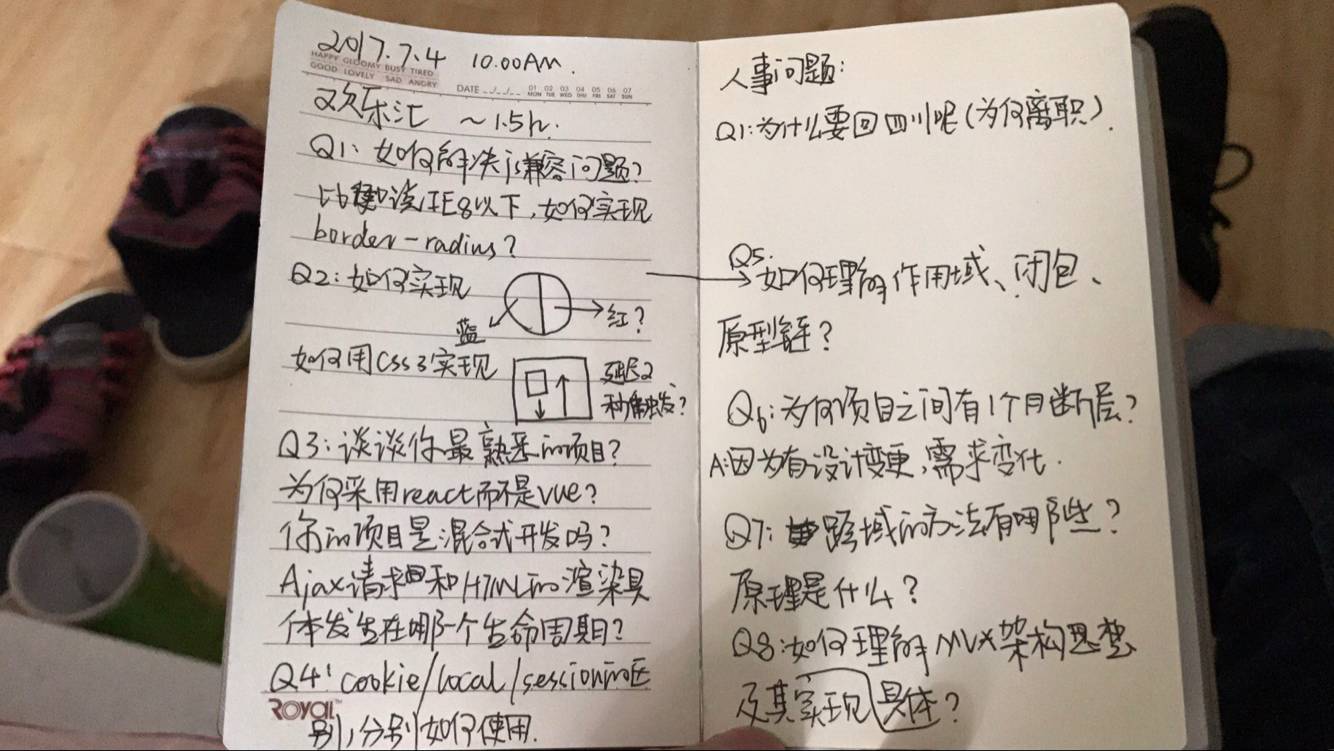 2017.7.4 10.00AM.
HAPPY GLOOMY BUSY TIRED
GOOD LOVELY SAD ANGRY
DATE _._/_._ 01 02 03 04 05 06 07
MON TUE WED THU FRI SAT SUN
欢乐汇 ~1.5h.
Q1、如何解决js兼容问题?
比如说IE8以下,如何实现
border-radius?
Q2:如何实现
蓝 红?
如何用CSS3实现
延迟2
秒触发?
Q3:谈谈你最熟悉的项目?
为何采用react而不是vue?
你的项目是混合式开发吗?
Ajax请求和HTML的渲染具
体发生在哪一个生命周期?
Q4:cookie/local/session的区
别,分别如何使用.
ROYAL™
人事问题:
Q1:为什么要回四川呢(为何离职).
Q5.
如何理解作用域、闭包、
原型链?
Q6:为何项目之间有1个月断层?
A:因为有设计变更,需求变化.
Q7:跨域的方法有哪些?
原理是什么?
Q8:如何理解MVX架构思想
及其实现具体?